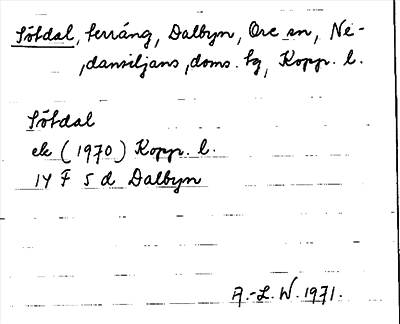 Sötdal, terräng, Dalbyn, Ore sn, Ne-
dansiljans, doms. hg, Kopp. l.
Sötdal
ek (1970) Kopp. l.
14 F 5 d Dalbyn
A.-L. W. 1971.